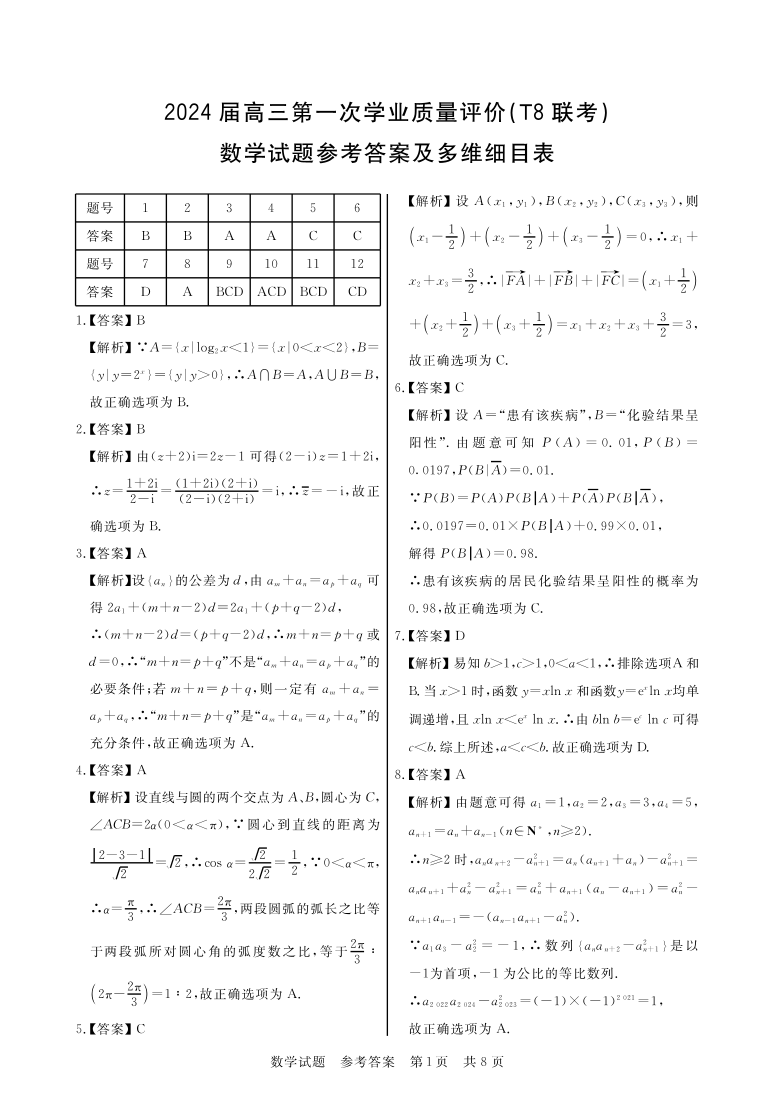 2024 届高三第一次学业质量评价(T8 联考)
数学试题参考答案及多维细目表
题号 1 2 3 4 5 6
答案 B B A A C C
题号 7 8 9 10 11 12
答案 D A BCD ACD BCD CD
1.【答案】B
【解析】∵A={x|log₂x<1}={x|0<x<2},B=
{y|y=2ˣ}={y|y>0},∴A∩B=A,A∪B=B,
故正确选项为 B.
2.【答案】B
【解析】由(z+2)i=2z−1 可得(2−i)z=1+2i,
∴z=\frac{1+2i}{2−i}=\frac{(1+2i)(2+i)}{(2−i)(2+i)}=i,∴\overline{z}=−i,故正
确选项为 B.
3.【答案】A
【解析】设{a_n}的公差为 d,由 a_m+a_n=a_p+a_q 可
得 2a₁+(m+n−2)d=2a₁+(p+q−2)d,
∴(m+n−2)d=(p+q−2)d,∴m+n=p+q 或
d=0,∴“m+n=p+q”不是“a_m+a_n=a_p+a_q”的
必要条件;若 m+n=p+q,则一定有 a_m+a_n=
a_p+a_q,∴“m+n=p+q”是“a_m+a_n=a_p+a_q”的
充分条件,故正确选项为 A.
4.【答案】A
【解析】设直线与圆的两个交点为 A、B,圆心为 C,
∠ACB=2α(0<α<π),∵圆心到直线的距离为
\frac{|2−3−1|}{√2}=√2,∴cos α=\frac{√2}{2√2}=\frac{1}{2},∵0<α<π,
∴α=\frac{π}{3},∴∠ACB=\frac{2π}{3},两段圆弧的弧长之比等
于两段弧所对圆心角的弧度数之比,等于\frac{2π}{3}∶
(2π−\frac{2π}{3})=1∶2,故正确选项为 A.
5.【答案】C
【解析】设 A(x₁,y₁),B(x₂,y₂),C(x₃,y₃),则
(x₁−\frac{1}{2})+(x₂−\frac{1}{2})+(x₃−\frac{1}{2})=0,∴x₁+
x₂+x₃=\frac{3}{2},∴|\overrightarrow{FA}|+|\overrightarrow{FB}|+|\overrightarrow{FC}|=(x₁+\frac{1}{2})
+(x₂+\frac{1}{2})+(x₃+\frac{1}{2})=x₁+x₂+x₃+\frac{3}{2}=3,
故正确选项为 C.
6.【答案】C
【解析】设 A=“患有该疾病”,B=“化验结果呈
阳性”. 由题意可知 P(A)=0. 01,P(B)=
0.0197,P(B|\overline{A})=0.01.
∵P(B)=P(A)P(B|A)+P(\overline{A})P(B|\overline{A}),
∴0.0197=0.01×P(B|A)+0.99×0.01,
解得 P(B|A)=0.98.
∴患有该疾病的居民化验结果呈阳性的概率为
0.98,故正确选项为 C.
7.【答案】D
【解析】易知 b>1,c>1,0<a<1,∴排除选项A 和
B. 当 x>1 时,函数 y=xln x 和函数y=eˣln x均单
调递增,且 xln x<eˣ ln x.∴由 bln b=eᶜ ln c 可得
c<b. 综上所述,a<c<b. 故正确选项为 D.
8.【答案】A
【解析】由题意可得 a₁=1,a₂=2,a₃=3,a₄=5,
a_{n+1}=a_n+a_{n−1}(n∈N*,n≥2).
∴n≥2 时,a_na_{n+2}−a_{n+1}^2=a_n(a_{n+1}+a_n)−a_{n+1}^2=
a_na_{n+1}+a_n^2−a_{n+1}^2=a_n^2+a_{n+1}(a_n−a_{n+1})=a_n^2−
a_{n+1}a_{n−1}=−(a_{n−1}a_{n+1}−a_n^2).
∵a₁a₃−a_2^2=−1,∴数列{a_na_{n+2}−a_{n+1}^2}是以
−1为首项,−1 为公比的等比数列.
∴a_{2 022}a_{2 024}−a_{2 023}^2=(−1)×(−1)^{2 021}=1,
故正确选项为 A.
数学试题 参考答案 第1页 共 8 页